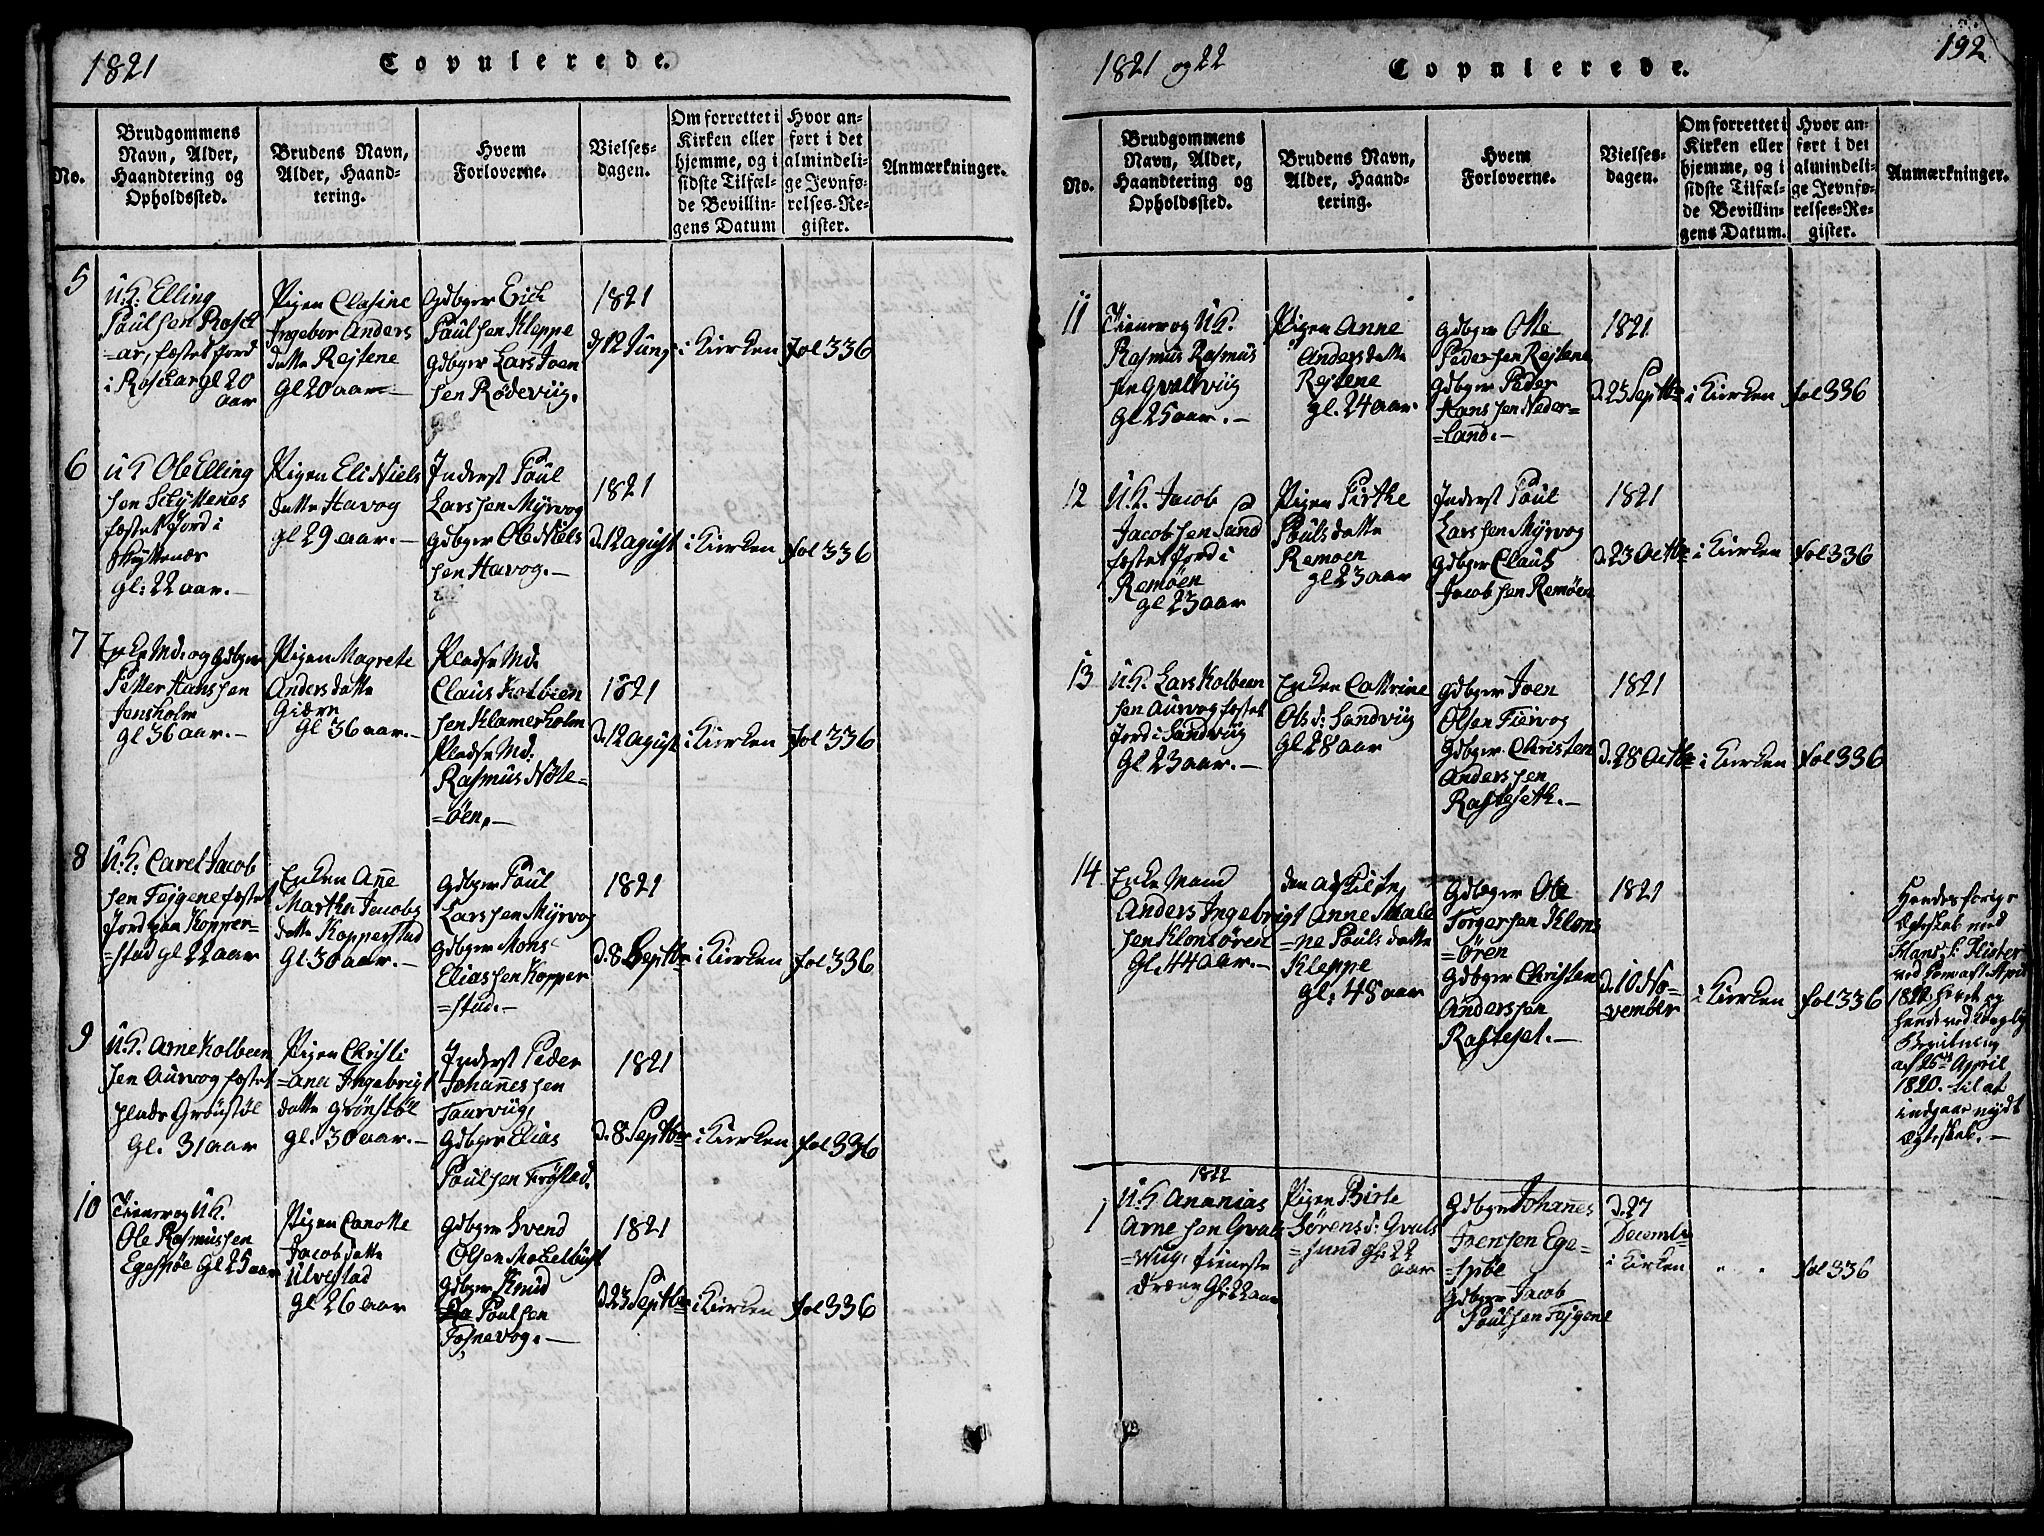 1821
Copulerede.
No.
Brudgommens
Navn, Alder,
Haandtering og
Opholdssted.
Brudens Navn,
Alder, Haand-
tering.
Hvem
Forloverne.
Vielses-
dagen.
Om forrettet i
Kirken eller
hjemme, og i
sidste Tilfæl-
de Bevillin-
gens Datum
Hvor an-
ført i det
almindeli-
ge Jevnfø-
relses-Re-
gister.
Anmærkninger.
5
U.K. Elling
Poulsen Rosk
=ar, fæstet jord
i Roskar gl 20
aar
Pigen Clasine
Ingebor Anders
datte Rejtene
Gl 20 aar
Gdbger Erich
Poulsen Kleppe
gdbger Lars Iven
sen Rødeviig.
1821
d 12 Juny
i Kirken
fol 336
6
U K Ole Elling
sen Skyttenes
fæstet jord i
Skyttenæs
gl: 22 aar.
Pigen Eli Niels
datte Havog
gl 29 aar.
Inderst Poul
Larssen Myrvog
gdbger Ole Niels
sen Havog.
1821
d. 12 agust
i Kirken
fol 336
7
Enke Md. og Gdbger
Petter Hanssen
Jensholm
gl 36 aar.
Pigen Magrete
Andersdatte
Giære
Gl 36 aar.
Pladse Md.
Claus Kolbeen
sen Klamerholm
Pladse Md:
Rasmus Nøte=
=øen,
1821
d. 12 agust
i Kirken
fol 336
8
U.K. Carel Jacob
sen Teigene fæstet
Jord paa Kopper=
=stad gl 22 aar
Enken Añe
Martha Jacobs
datte Kopperstad
Gl 30 aar.
gdbger Poul
Larssen Myrvog
gdbger Mons
Eliassen Kopper
=stad.
1821
d. 8 Septbr
i Kirken
fol 336
9
U.K. Arne Kolbeen
sen Aurvog fæstet
Grønstøl
Gl. 31 aar
Pigen Christi
=ana Ingebrigt
datte Grønstøl
gl. 30 aar.
Inderst Peder
Johañessen
Taurviig,
Gdbger Elias
Poulsen Frøstad.
1821
d. 8 Septbr
i Kirken
fol 336
10
Tiener og U K.
Ole Rasmussen
Egesøe Gl 25 aar
Pigen Canotte
Jacobdatte
Ulvestad
gl 26 aar
Gdbger Svend
Olsen Mobelbust
Gdbger Knud
Poulsen
Fosnevog.
1821
d 23 Septbr
i Kirken
fol 336
1821 og 22
Copulerede.
192
No.
Brudgommens
Navn, Alder,
Haandtering og
Opholdssted.
Brudens Navn,
Alder, Haand-
tering.
Hvem
Forloverne.
Vielses-
dagen.
Om forrettet i
Kirken eller
hjemme, og i
sidste Tilfæl-
de Bevillin-
gens Datum.
Hvor an-
ført i det
almindeli-
ge Jevnfø-
relses-Re-
gister.
Anmærkninger.
11
Tiener og U K.
Rasmus Rasmus
sen Gvalsviig
Gl 25 aar.
Pigen Anne
Andersdatte
Rejtene
gl. 24 aar.
gdbger Otte
Pedersen Rejtene
gdbger Peder
Hanssen Neder=
=land.
1821
d. 23 Septbr
i Kirken
fol 336
12
U.K. Jacob
Jacobsen Sand
fæstet Jord i
Remøen
gl 23 aar
Pigen Pirthe
Poulsdatte
Remøen
gl 23 aar
Inderst Poul
Larssen Myrvog
gdbger Claus
Jacobsen Remøen
1821
d. 23 Octbr
i Kirken
fol 336
13
U.K. Lars Kolbeen
sen Aurvog fæstet
Jord i Sandviig
Gl 23 aar.
Enken Cattrine
Olsd: Sandviig
Gl 28 aar
gdbger Iven
Olsen Tiervog
gdbger Christen
Anderssen
Rasteseth.
1821
d. 28 Octbr
i Kirken
fol 336
14
Enke Mand
Anders Ingebrigt
sen Klonsøren
Gl. 44 aar.
den adskilte
Anne Male
=ne Pouls datte
Kleppe
gl. 48 aar
gdbger Ole
Torgersen Klons
=øren
gdbger Christen
Anderssen
Rasteset.
1821
d. 10 No-
vember
i Kirken
fol 336
Hendes forige
Egteskab med
Hans
ved April
hende ved
Bevilning
af 26de April
1820. til at
indgaae nydt
Egteskab.
1822
1
U.K. Ananias
Arnesen Gvals
=wiig, tieneste
dræng Gl 22 aar
Pigen Birte
Sørensd: Gvals
=sund gl: 22
aar
Gdbger Johañes
Ivensen Ege=
=søbe
gdbger Jacob
Poulsen Tejgene
d. 27
Decembr
i Kirken
fol 336